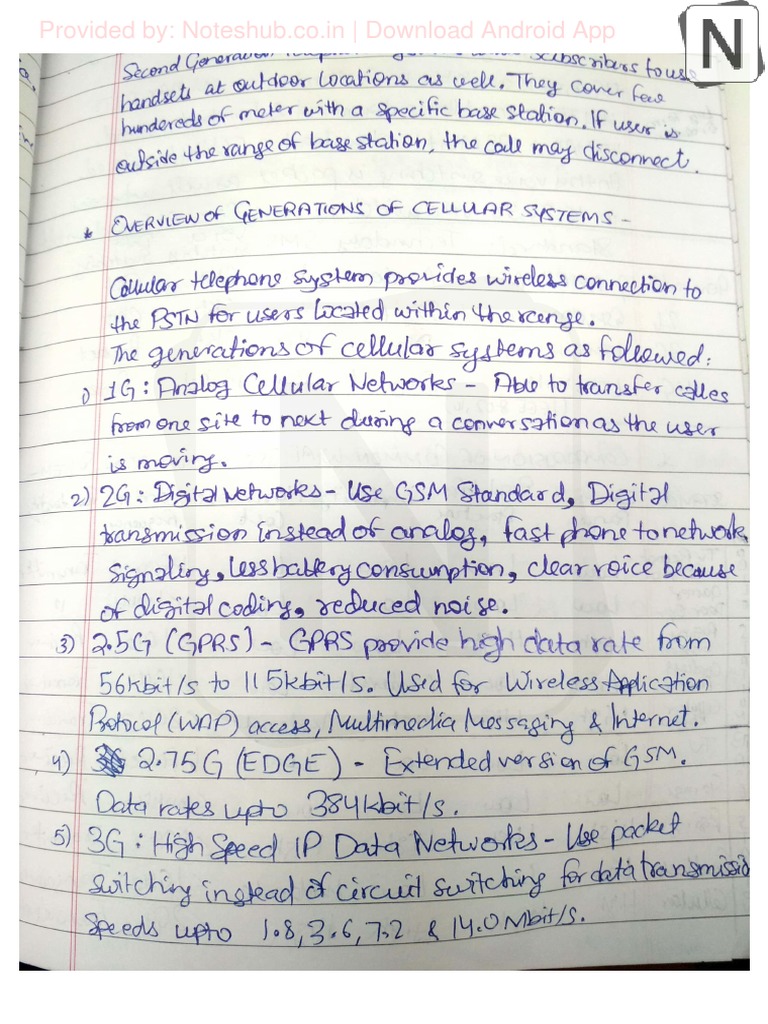 Provided by: Noteshub.co.in | Download Android App
N
Second Generation subscribers to use
handsets at outdoor locations as well. They cover few
hundereds of meter with a specific base station. If user is
outside the range of base station, the call may disconnect.
* OVERVIEW OF GENERATIONS OF CELLULAR SYSTEMS -
Cellular telephone system provides wireless connection to
the PSTN for users located within the range.
The generations of cellular systems as followed:
1) 1G: Analog Cellular Networks - Able to transfer calles
from one site to next during a conversation as the user
is moving.
2) 2G: Digital Networks - Use GSM Standard, Digital
transmission instead of analog, fast phone to network
signaling, less battery consumption, clear voice because
of digital coding, reduced noise.
3) 2.5G (GPRS) - GPRS provide high data rate from
56kbit/s to 115kbit/s. Used for Wireless Application
Protocol (WAP) access, Multimedia Messaging & Internet.
4) 2.75G (EDGE) - Extended version of GSM.
Data rates upto 384kbit/s.
5) 3G: High Speed IP Data Networks - Use packet
switching instead of circuit switching for data transmissio
Speeds upto 1.8, 3.6, 7.2 & 14.0 Mbit/s.